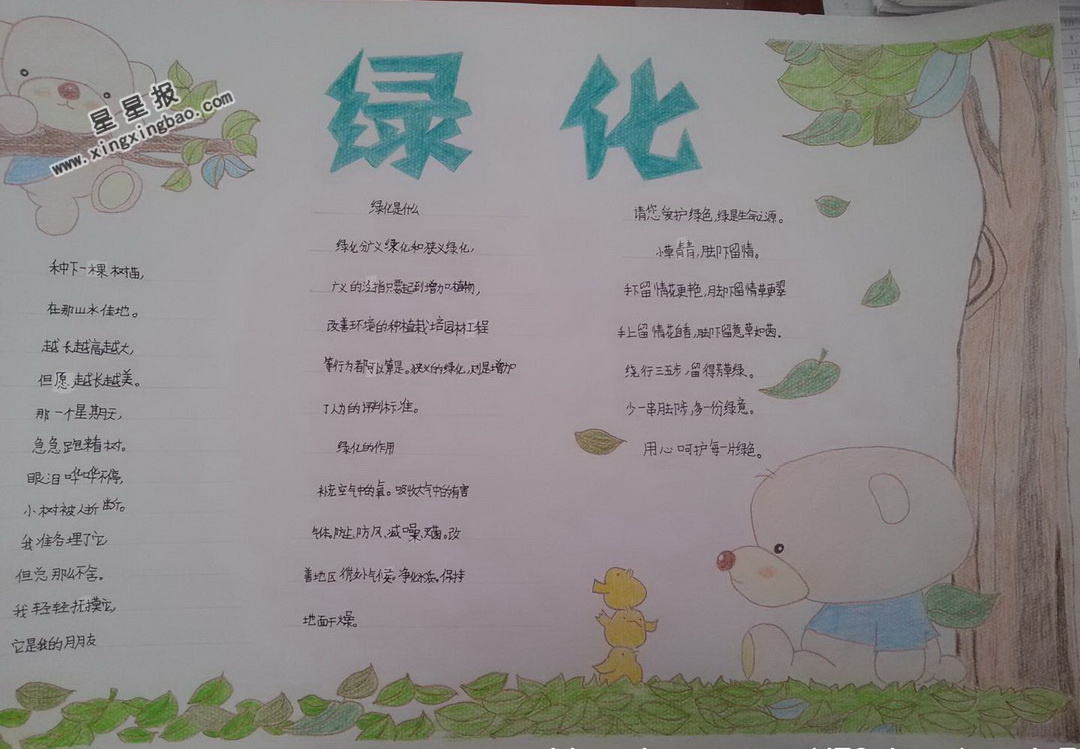 绿化
星星报
www.xingxingbao.com
种下一棵树苗,
在那山水佳地。
越长越高越大,
但愿越长越美。
那一个星期天,
急急跑来看树。
眼泪哗哗不停,
小树被人折断。
我准备埋了它
但总那么不舍。
我轻轻抚摸它,
它是我的朋友
绿化是什么
绿化分广义绿化和狭义绿化,
广义的泛指只要起到增加植物,
改善环境的种植栽培园林工程
等行为都可以算是。狭义的绿化,则是增加
了人为的评判标准。
绿化的作用
补充空气中的氧。吸收大气中的有害
气体。防止防风、减噪、灭菌。改
善地区微处气候。净化水系。保持
地面干燥。
请您爱护绿色,绿是生命之源。
小草青青,脚下留情。
手下留情花更艳,脚下留情草更翠
手上留情花自香,脚下留意草如茵。
绕行三五步,留得芳草绿。
少一串脚步,多一份绿意。
用心呵护每一片绿色。